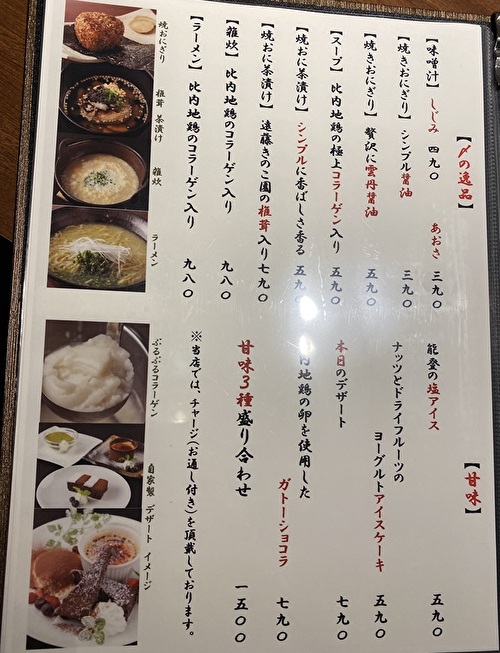 【〆の逸品】
【味噌汁】しじみ 四九〇 あおさ 三九〇
【焼きおにぎり】シンプル醤油 三九〇
【焼きおにぎり】贅沢に雲丹醤油 五九〇
【スープ】比内地鶏の極上コラーゲン入り 五九〇
【焼おに茶漬け】シンプルに香ばしさ香る 五九〇
【焼おに茶漬け】遠藤きのこ園の椎茸入り 七九〇
【雑炊】比内地鶏のコラーゲン入り 九八〇
【ラーメン】比内地鶏のコラーゲン入り 九八〇
焼おにぎり
椎茸 茶漬け
雑炊
ラーメン
【甘味】
能登の塩アイス 五九〇
ナッツとドライフルーツの
ヨーグルトアイスケーキ 五九〇
本日のデザート 七九〇
内地鶏の卵を使用した
ガトーショコラ 七九〇
甘味3種盛り合わせ 一五〇〇
※当店では、チャージ(お通し付き)を頂戴しております。
ぷるぷるコラーゲン
自家製 デザート イメージ